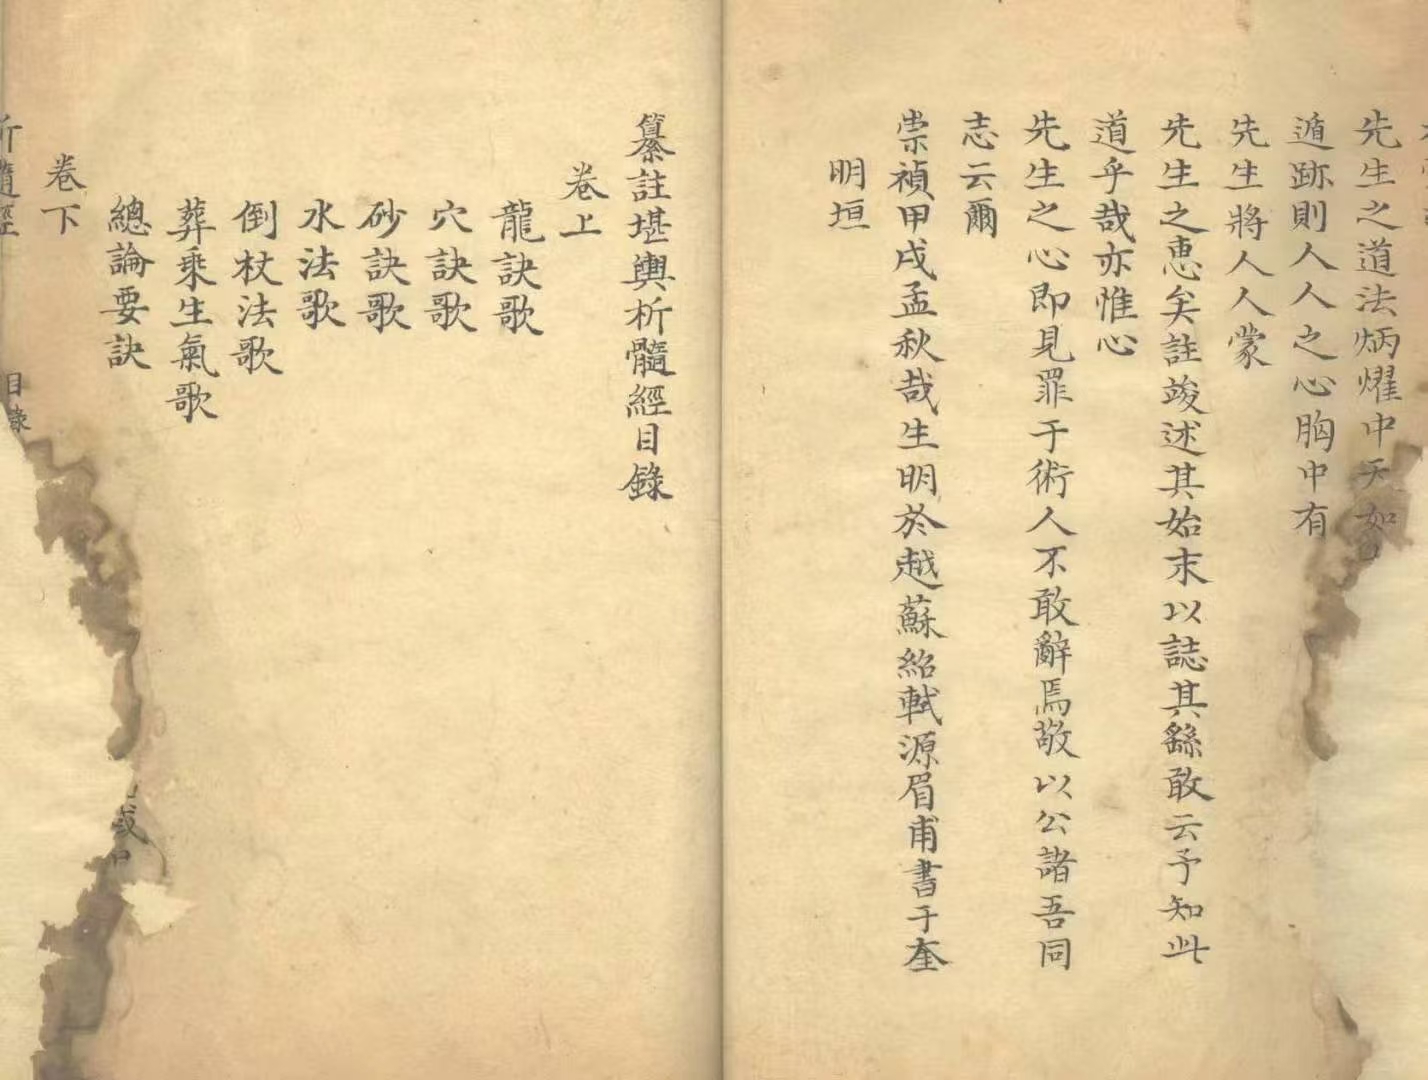 先生之道法炳耀中天如
遁跡則人人之心胸中有
先生將人人蒙
先生之惠矣註竣述其始末以誌其繇敢云予知此
道乎哉亦惟心
先生之心即見罪于術人不敢辭焉敬以公諸吾同
志云爾
崇禎甲戌孟秋哉生明於越蘇紹軾源眉甫書于奎
明垣
纂註堪輿析髓經目錄
卷上
龍訣歌
穴訣歌
砂訣歌
水法歌
倒杖法歌
葬乘生氣歌
總論要訣
卷下
析髓經
目錄